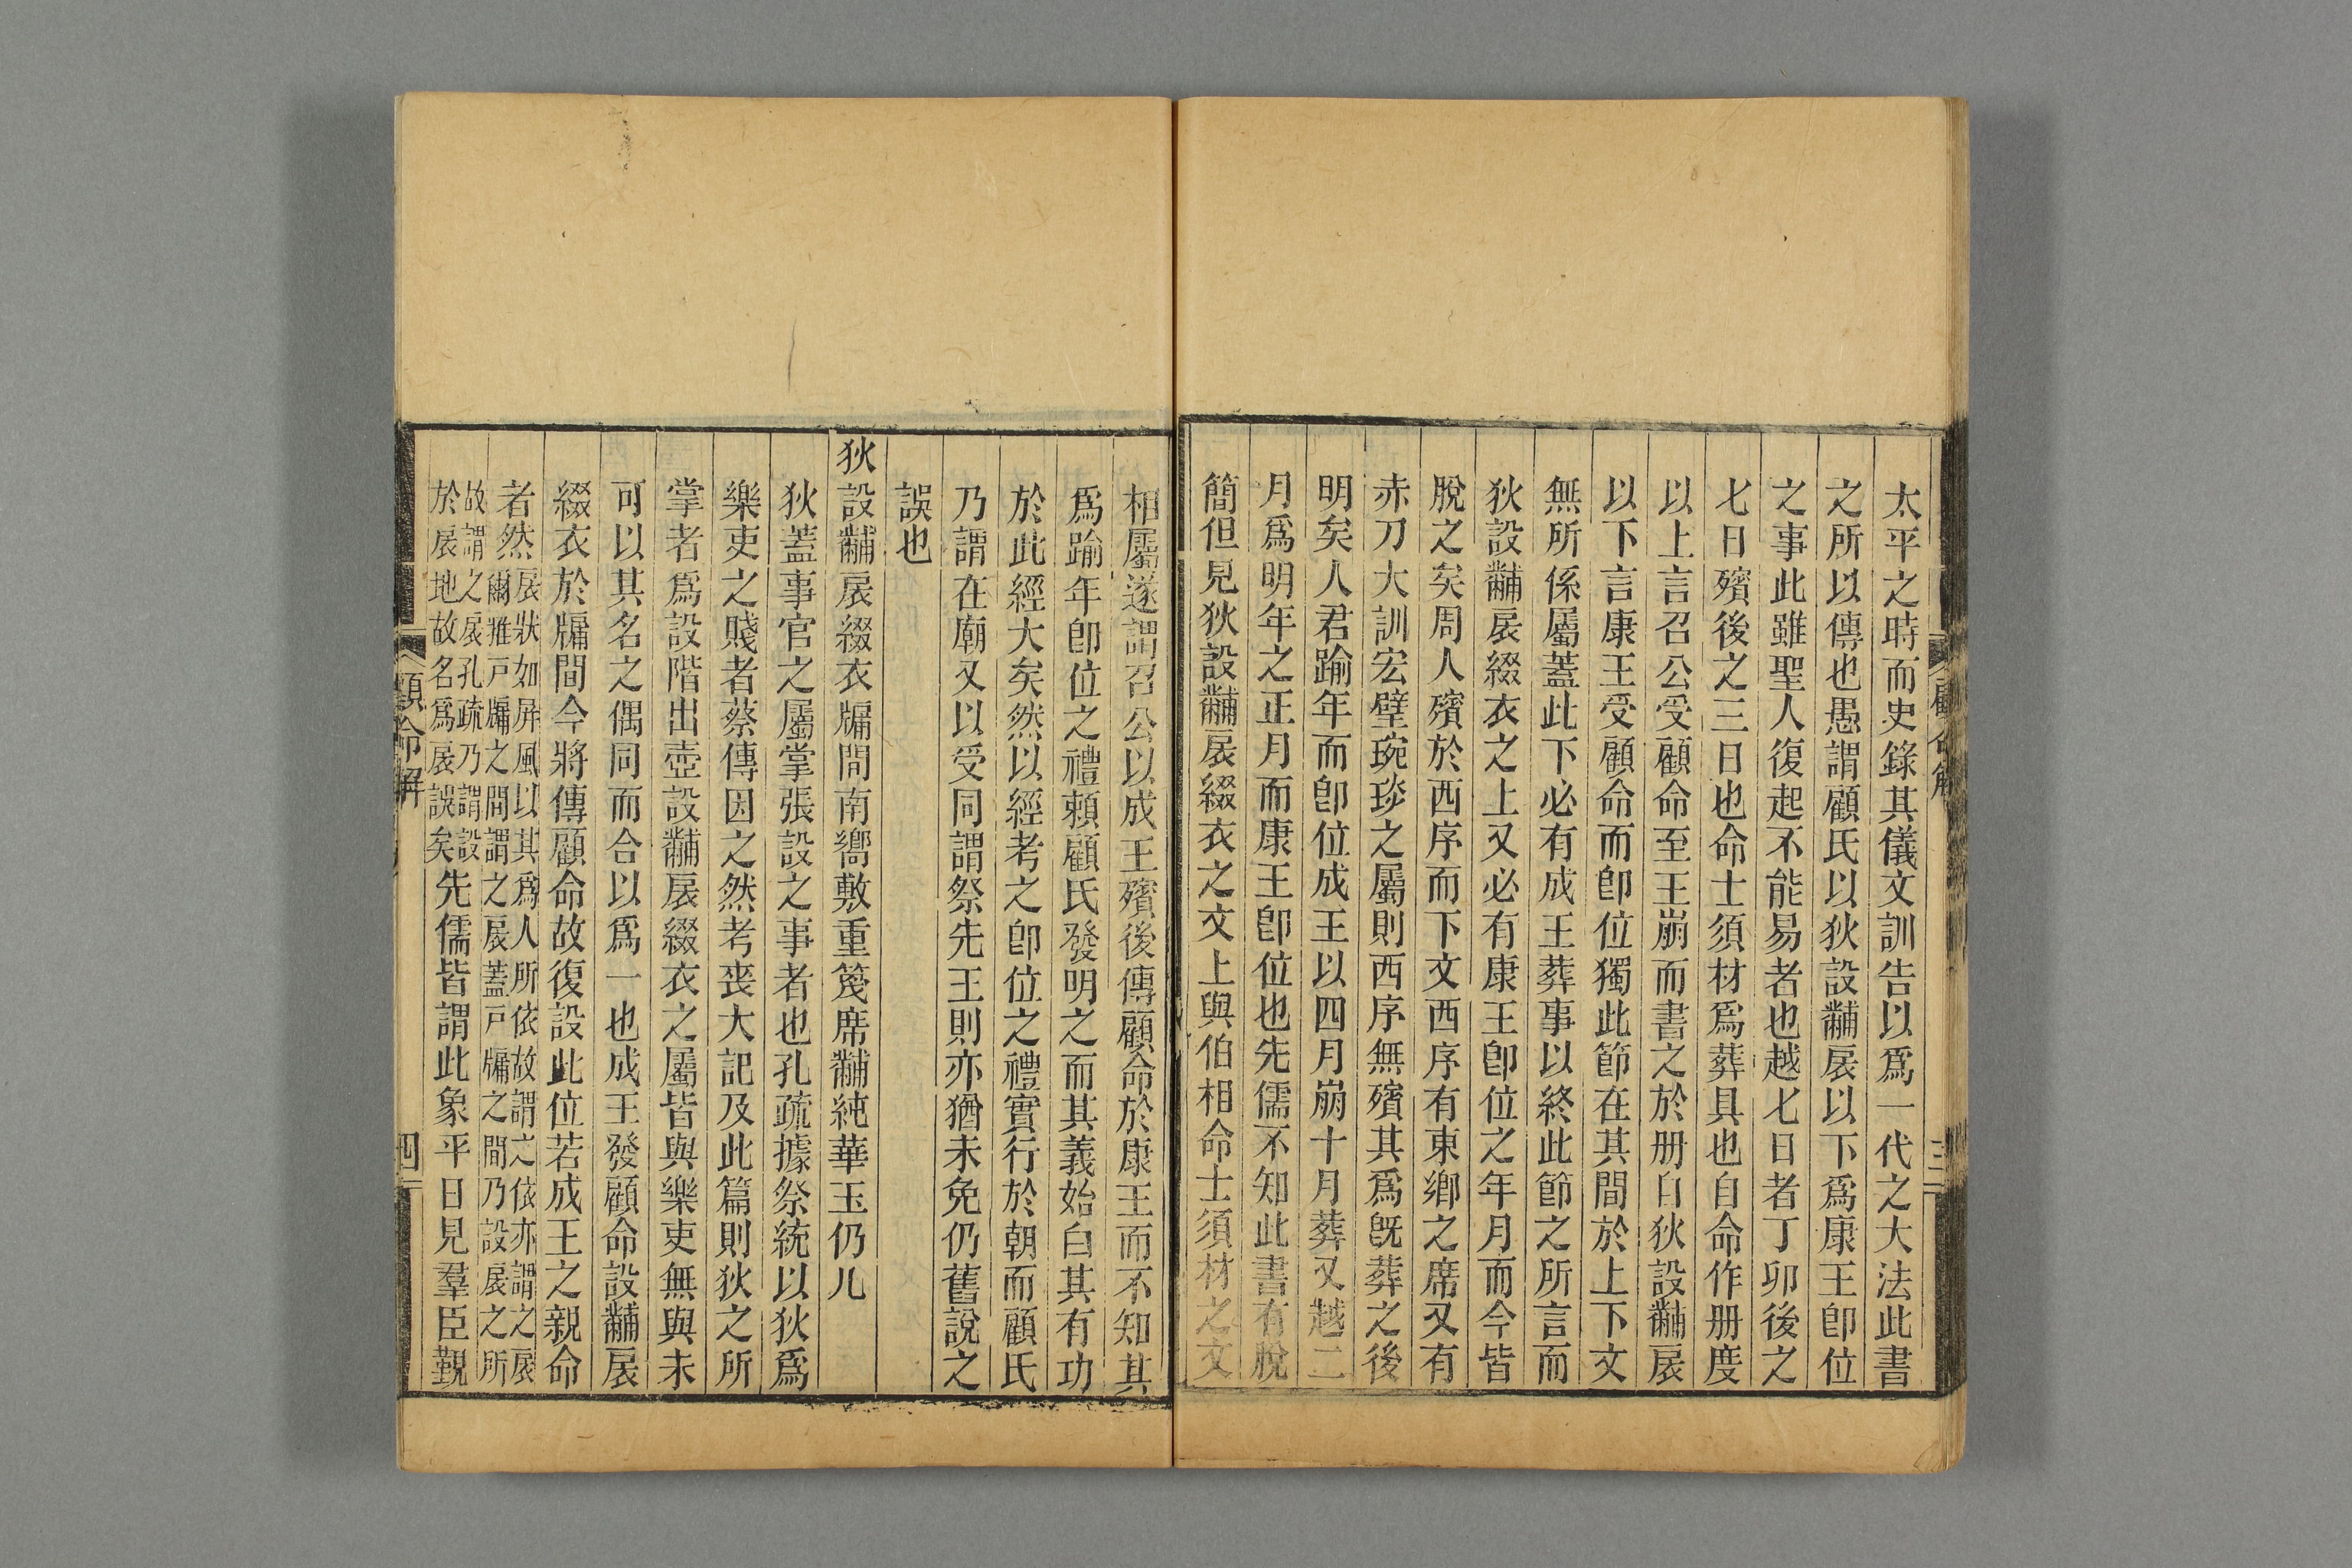 太平之時而史錄其儀文訓告以爲一代之大法此書
之所以傳也愚謂顧氏以狄設黼扆以下爲康王卽位
之事此雖聖人復起不能易者也越七日者丁卯後之
七日殯後之三日也命士須材爲葬具也自命作册度
以上言召公受顧命至王崩而書之於册自狄設黼扆
以下言康王受顧命而卽位獨此節在其間於上下文
無所係屬蓋此下必有成王葬事以終此節之所言而
狄設黼扆綴衣之上又必有康王卽位之年月而今皆
脫之矣周人殯於西序而下文西序有東鄉之席又有
赤刀大訓宏璧琬琰之屬則西序無殯其爲旣葬之後
明矣人君踰年而卽位成王以四月崩十月葬又越二
月爲明年之正月而康王卽位也先儒不知此書有脫
簡但見狄設黼扆綴衣之文上與伯相命士須材之文
相屬遂謂召公以成王殯後傳顧命於康王而不知其
爲踰年卽位之禮賴顧氏發明之而其義始白其有功
於此經大矣然以經考之卽位之禮實行於朝而顧氏
乃謂在廟又以受同謂祭先王則亦猶未免仍舊說之
誤也
狄設黼扆綴衣牖間南嚮敷重篾席黼純華玉仍几
狄蓋事官之屬掌張設之事者也孔疏據祭統以狄爲
樂吏之賤者蔡傳因之然考喪大記及此篇則狄之所
掌者爲設階出壺設黼扆綴衣之屬皆與樂吏無與未
可以其名之偶同而合以爲一也成王發顧命設黼扆
綴衣於牖間今將傳顧命故復設此位若成王之親命
者然扆狀如屛風以其爲人所依故謂之依亦謂之扆
爾雅戶牖之間謂之扆蓋戶牖之間乃設扆之所
故謂之扆孔疏乃謂設
於扆地故名爲扆誤矣先儒皆謂此象平日見羣臣覲
顧命解
三
顧命解
四